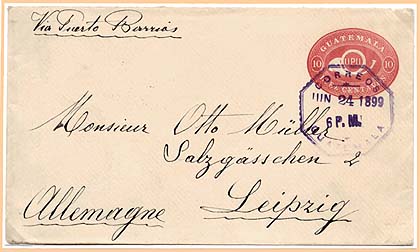 Via Puerto Barrios
GUATEMALA
10 UPU 10
DIEZ CENTAVOS
CORREOS
JUN 24 1899
6 P.M.
GUATEMALA
Monsieur Otto Müller
Salzgässchen 2
Leipzig
Allemagne